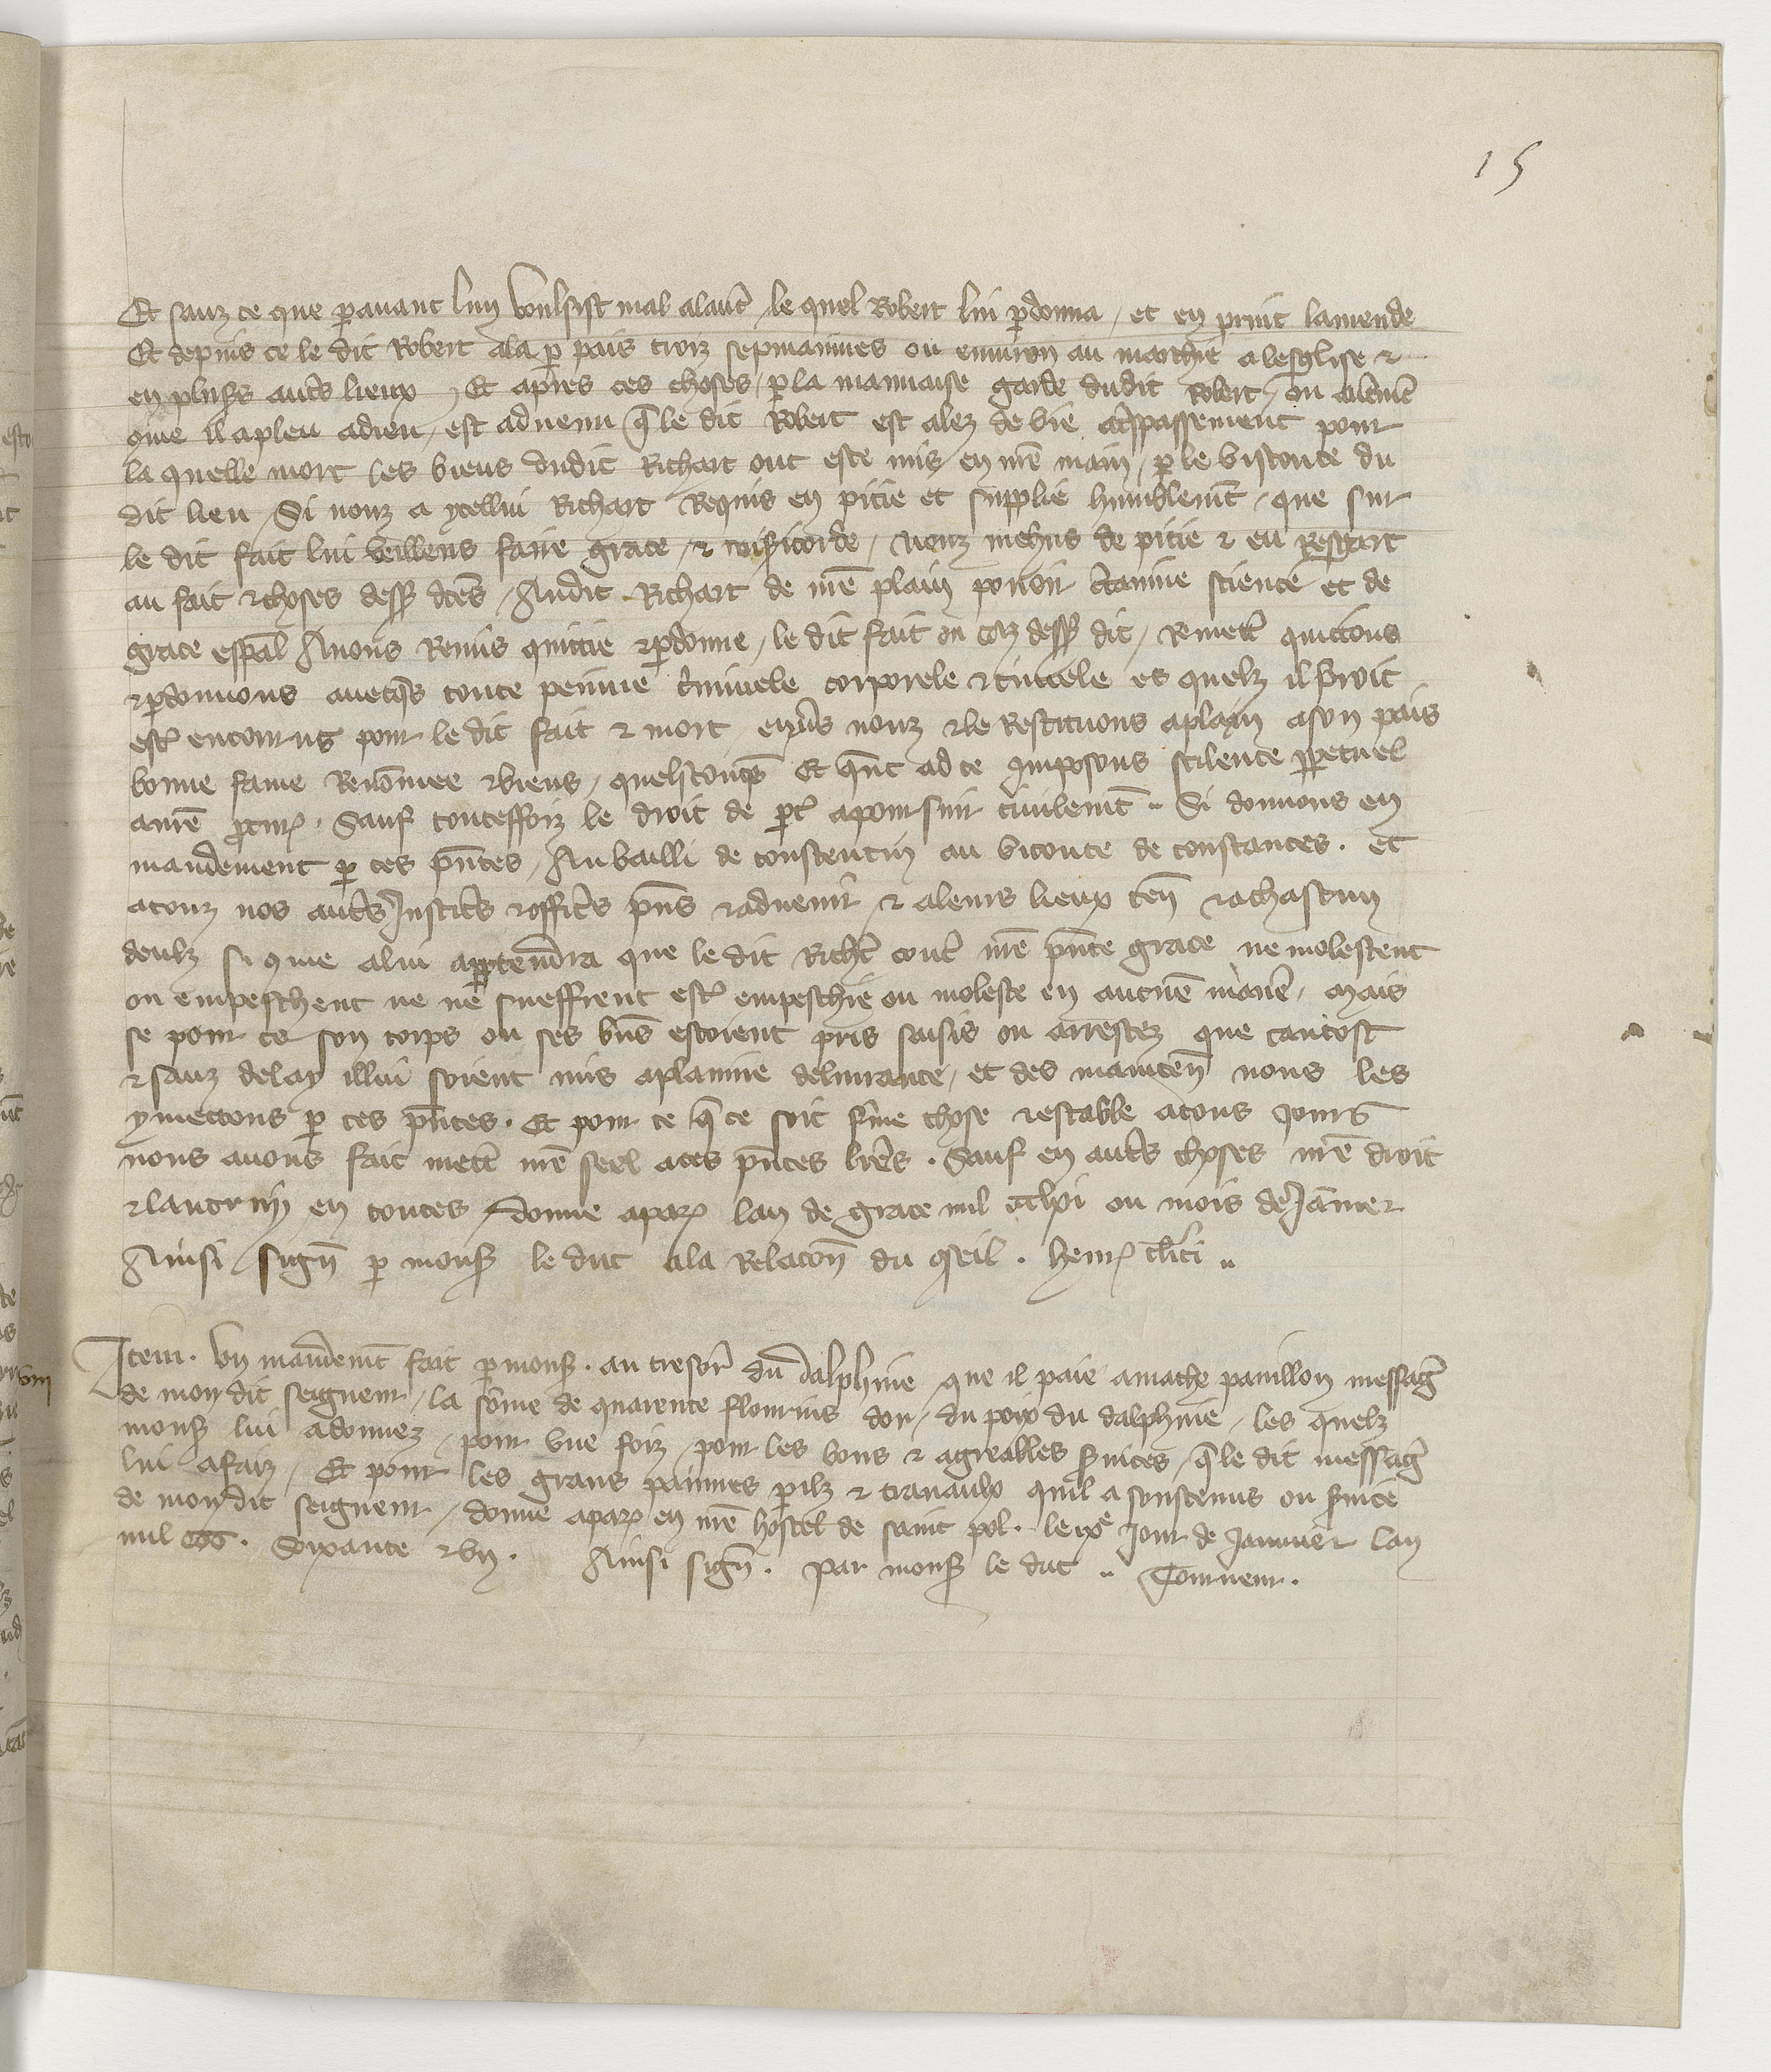 15
Et sanz ce que p avant lun voulsist mal alautr le quel Robert lui pdonna et en print lamende
Et depuis ce le dit Robert ala p pais troiz sepmainnes ou environ au marchie a lesglise et
en plus autres lieux Et apres ces choses p la mauvaise garde dudit Robert ou autment
cōme il a pleu a dieu est advenu q̄ le dit Robert est alez de vie a trspassement pour
la quelle mort les biens dudit Richart ont este mis en nrē main p le visconte du
dit lieu Si nouz a ycellui Richart Requis en pitie et supplie humblemt que sur
le dit fait lui veillens faire grace et misicorde nouz mehus de pitie et eu resgart
au fait et choses dess dcēs Audit Richart de nrē plain pouoir ctainne science et de
grace espal Avons Remis quittie et pdonne le dit fait ou cas dess dit Remett quittons
et pdonnons avecqs toute peinne cminele corporele et civele es quelz il proit
est encourus pour le dit fait et mort envs nouz et le Restituons a plain a son pais
bonne fame Renōmee et biens quelsconqs Et qnt ad ce imposons scilence ppetuel
a nrē pcur Sauf touteffoiz le droit de ptie a poursuir civilemt Si donnons en
mandement p ces pntes Au bailli de constentin au viconte de constances et
a touz nos autrs Justicrs et officrs pns et advenir et a leurs lieux ten et a chascun
deulz si cōme a lui apptendra que le dit Richt contr nrē pnte grace ne molestent
ou empeschent ne ne sueffrent estr empeschie ou moleste en aucune manrē mais
se pour ce son corps ou ses bns estoient pris saisis ou arrestez que tantost
et sanz delay illui soient mis a plainne delivrance et des mainten nous les
y mettons p ces pntes Et pour ce q̄ ce soit fme chose et estable a tous jours
nous avons fait mettr nrē seel a ces pntes lrēs Sauf en autrs choses nrē droit
et lautrui en toutes donne a par lan de grace mil ccclxi ou mois de Janvier
Ainsi sign p mons le duc a la Relacon du cseil henr clici
Item un mandemt fait p mons au tresor du dalphine que il paie a mache pavillon messagr
de mon dit seigneur la sōme de quarente flourins dor du poix du dalphine les quelz
mons lui a donnez pour une foiz pour les bons et agreables svices q̄ le dit messagr
lui a faiz Et pour les grans painnes pilz et travaulx quil a soustenus ou svice
de mon dit seigneur donne a par en nrē hostel de saint pol le ixe jour de Janvier lan
mil ccc soixante et un Ainsi sign par mons le duc Tourneur